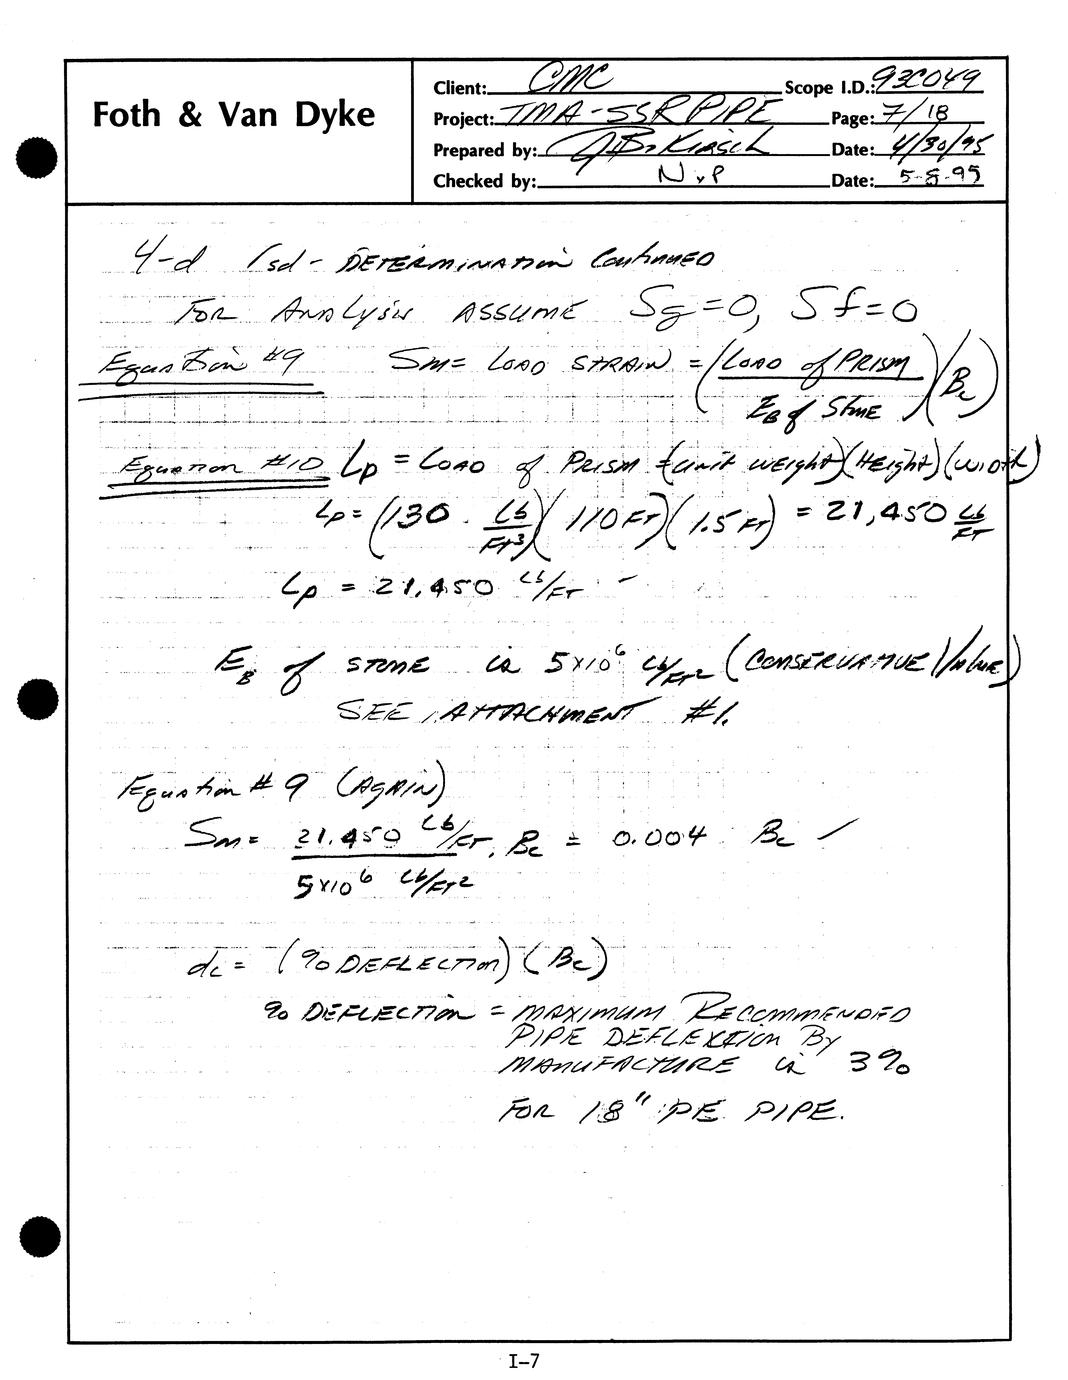 Foth & Van Dyke
Client: CMC Scope I.D.: 93C049
Project: TMA-SSR PIPE Page: 7/18
Prepared by: J.B. Kirsch Date: 4/30/95
Checked by: NVP Date: 5-8-95
4-d rsd - DETERMINATION Continued
FOR ANALYSIS ASSUME Sg=0, Sf=0
Equation #9 Sm= LOAD STRAIN = (LOAD of PRISM / EB of Stone)(Bc)
Equation #10 Lp = LOAD of PRISM = (unit weight)(Height)(width)
Lp = (130 Lb/FT3)(110 FT)(1.5 FT) = 21,450 Lb/FT
Lp = 21,450 Lb/FT
EB of STONE is 5x10^6 Lb/FT2 (CONSERVATIVE Value)
SEE ATTACHMENT #1.
Equation # 9 (AGAIN)
Sm= 21,450 Lb/FT / 5x10^6 Lb/FT2 . Bc = 0.004 Bc
dc = (% DEFLECTION)(Bc)
% DEFLECTION = MAXIMUM RECOMMENDED
PIPE DEFLEXTION By
MANUFACTURE is 3%
FOR 18" PE PIPE.
I-7